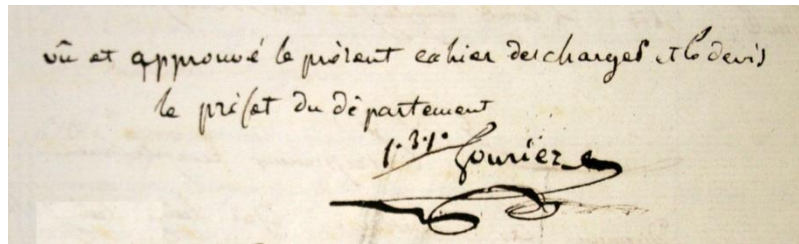 vû et approuvé le présent cahier des charges et le devis
le préfet du département
Fourier